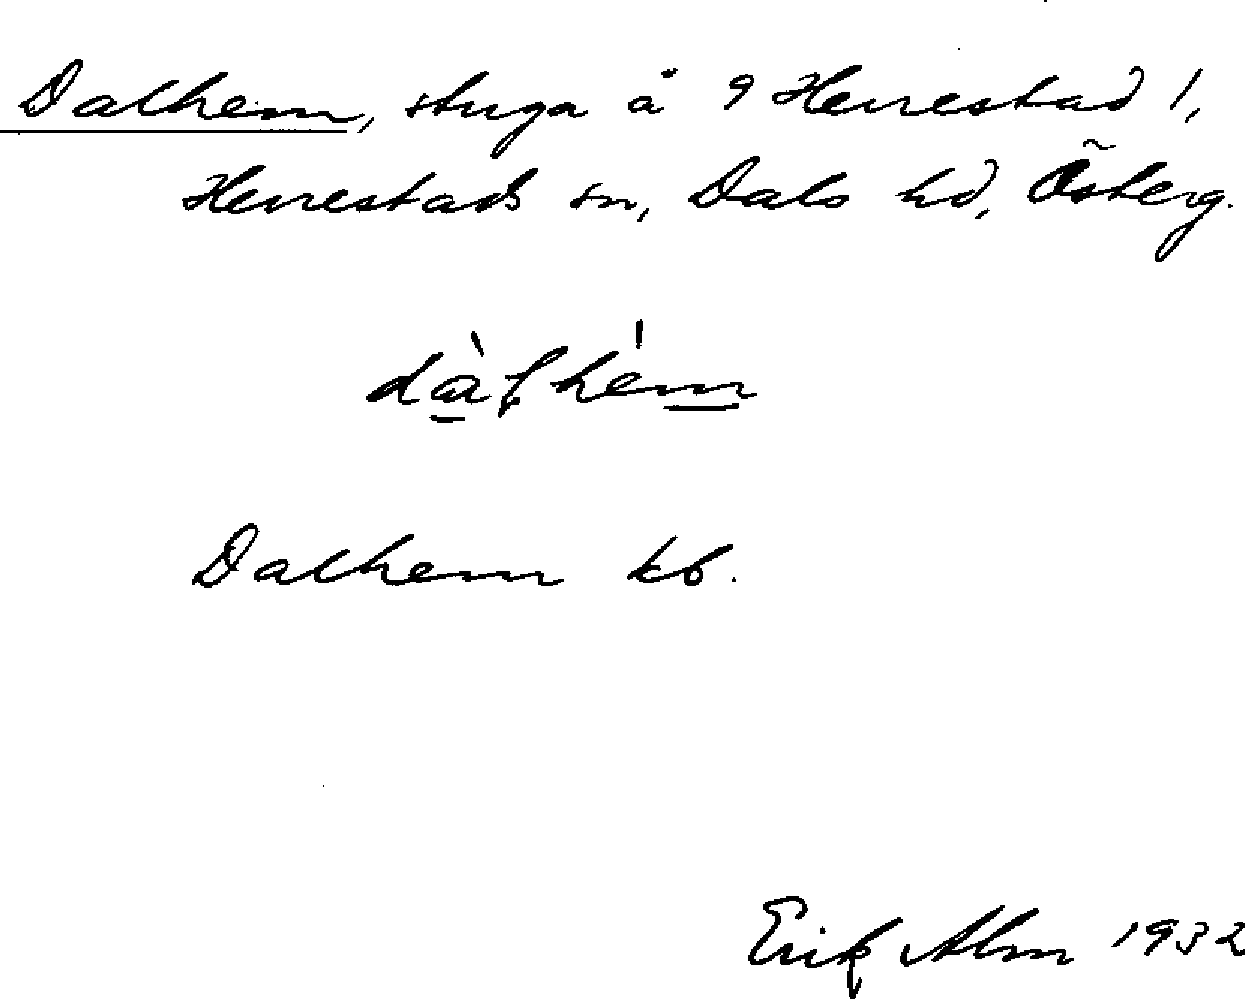 Dalhem, stuga å 9 Herrestad 1,
Herrestads sn, Dals hd, Österg.
Dalhem kb.
Erik Alm 1932